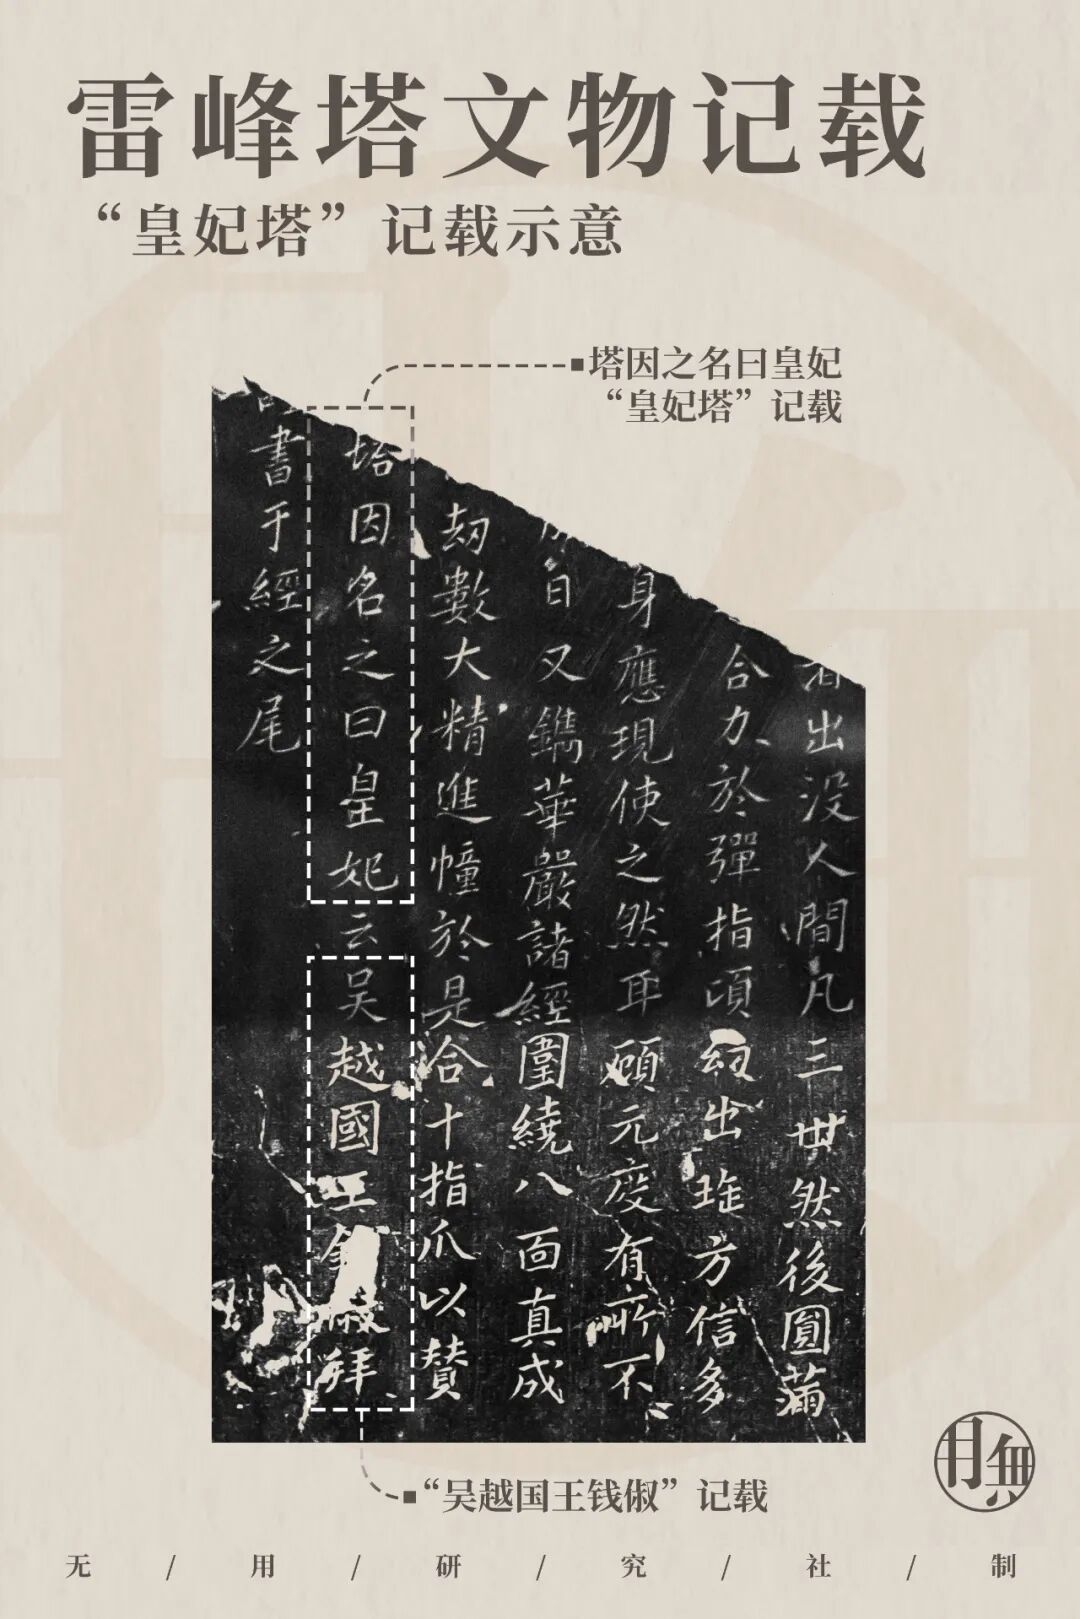 雷峰塔文物记载
“皇妃塔”记载示意
塔因之名曰皇妃
“皇妃塔”记载
出沒人間凡三世然後圓滿
合力於彈指頃幻出珤方信多
身應現使之然耳顧元度有所不
日又鐫華嚴諸經圍繞八面真成
劫數大精進幢於是合十指爪以贊
塔因名之曰皇妃云吳越國王錢俶拜
書于經之尾
“吴越国王钱俶”记载
無用
无/用/研/究/社/制